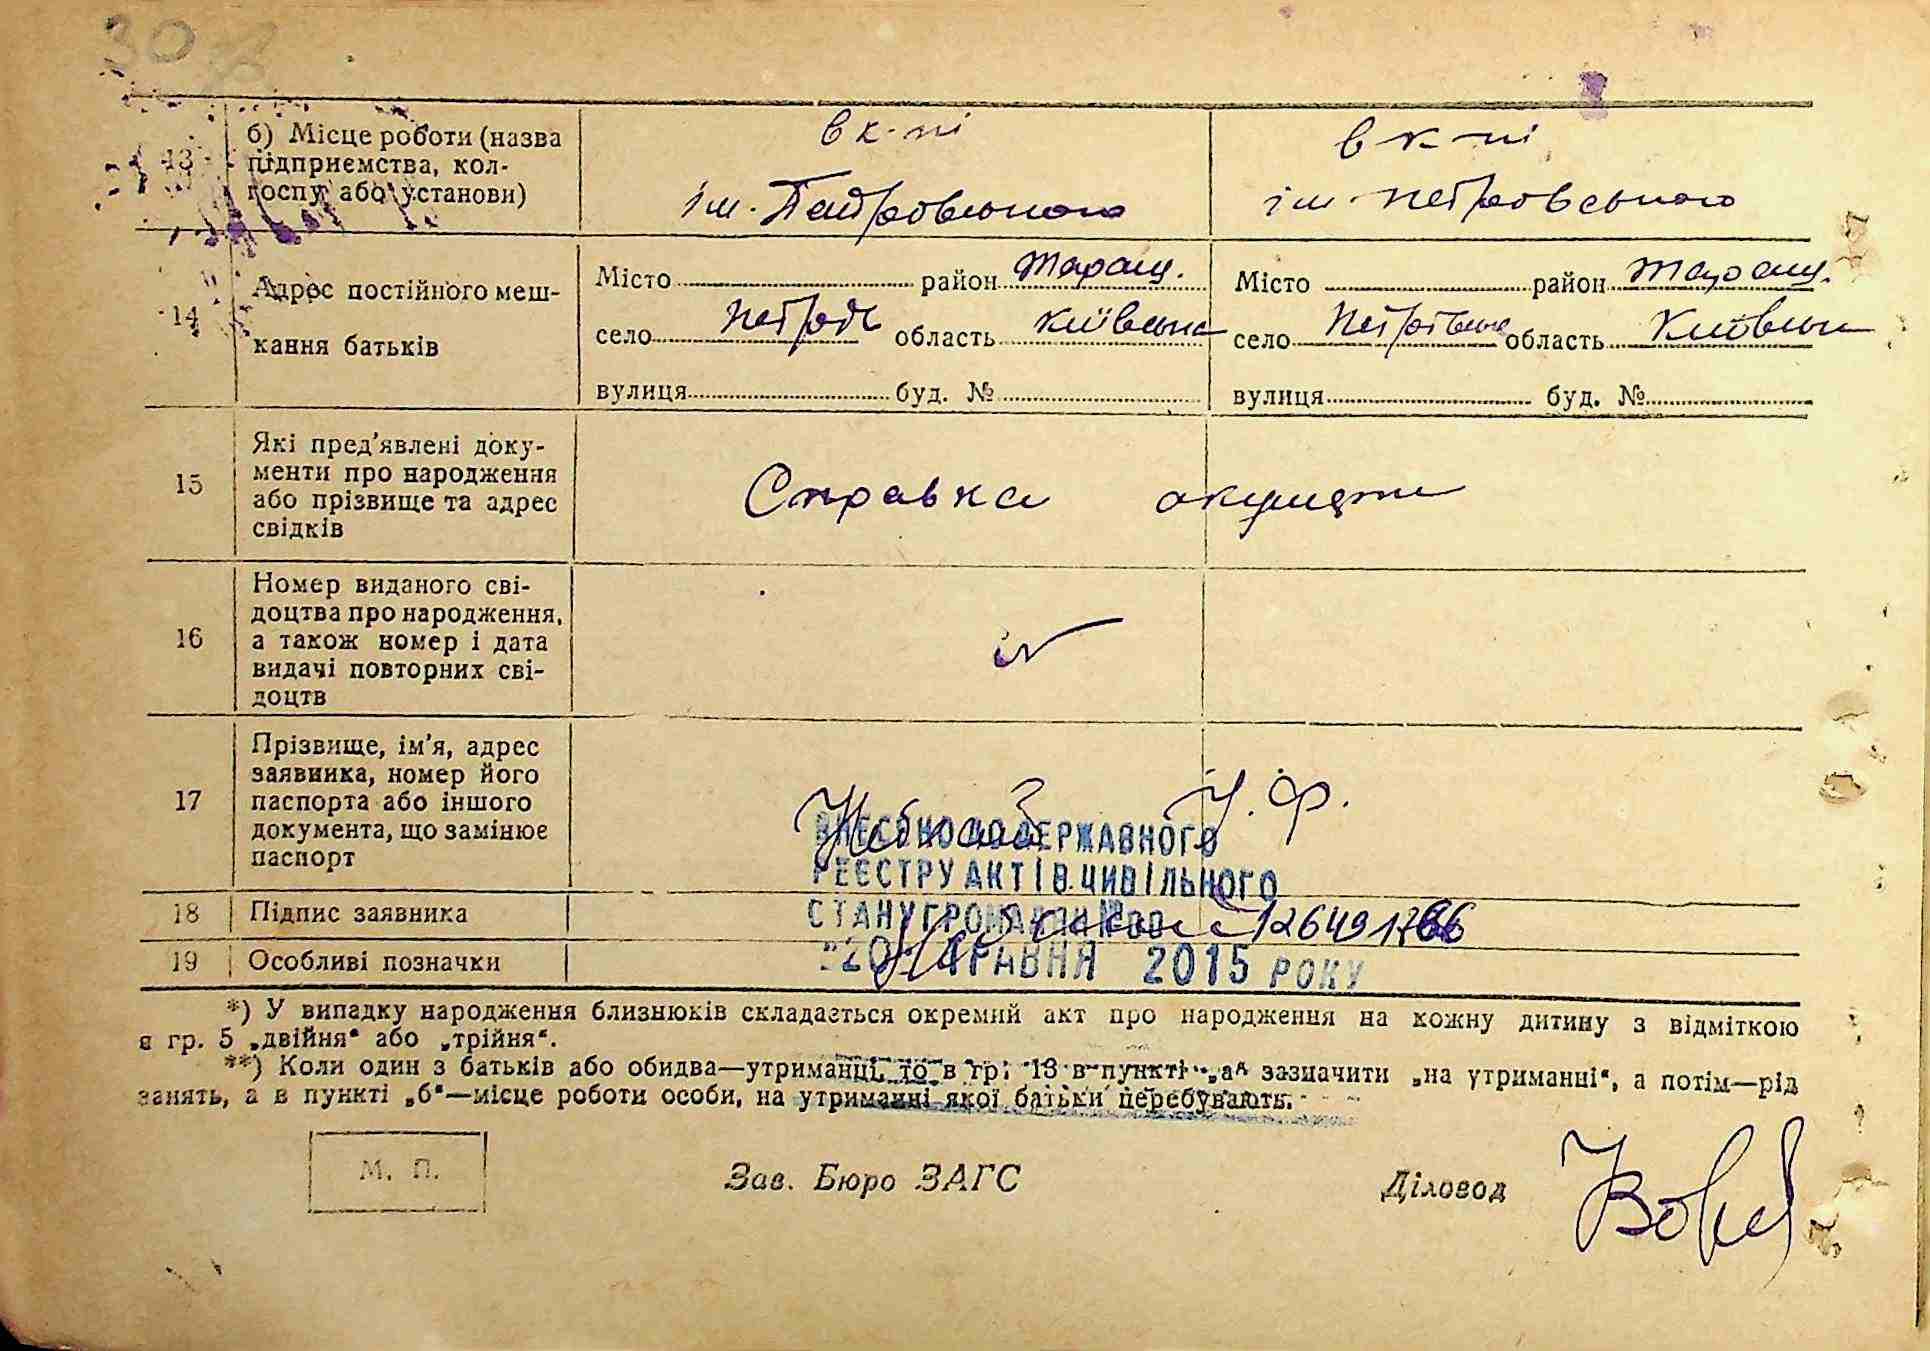 30
13
б) Місце роботи (назва
підприємства, кол-
госпу або установи)
в к-пі
ім. Петровського
в к-пі
ім. Петровського
14
Адрес постійного меш-
кання батьків
Місто район Таращ.
село область Київська
вулиця буд. №
Місто район Таращ.
село Петрівське область Київськ
вулиця буд. №
15
Які пред'явлені доку-
менти про народження
або прізвище та адрес
свідків
Справка
16
Номер виданого сві-
доцтва про народження,
а також номер і дата
видачі повторних сві-
доцтв
17
Прізвище, ім'я, адрес
заявника, номер його
паспорта або іншого
документа, що замінює
паспорт
Ф.
ВНЕСЕНО ДО ДЕРЖАВНОГО
РЕЄСТРУ АКТІВ ЦИВІЛЬНОГО
18
Підпис заявника
СТАНУ ГРОМАДЯН №00
19
Особливі позначки
"20" ТРАВНЯ 2015 РОКУ
*) У випадку народження близнюків складається окремий акт про народження на кожну дитину з відміткою
в гр. 5 „двійня“ або „трійня“.
**) Коли один з батьків або обидва—утриманці, то в гр. 13 в пункті „а“ зазначити „на утриманні“, а потім—рід
занять, а в пункті „б“—місце роботи особи, на утриманні якої батьки перебувають.
М. П.
Зав. Бюро ЗАГС
Діловод